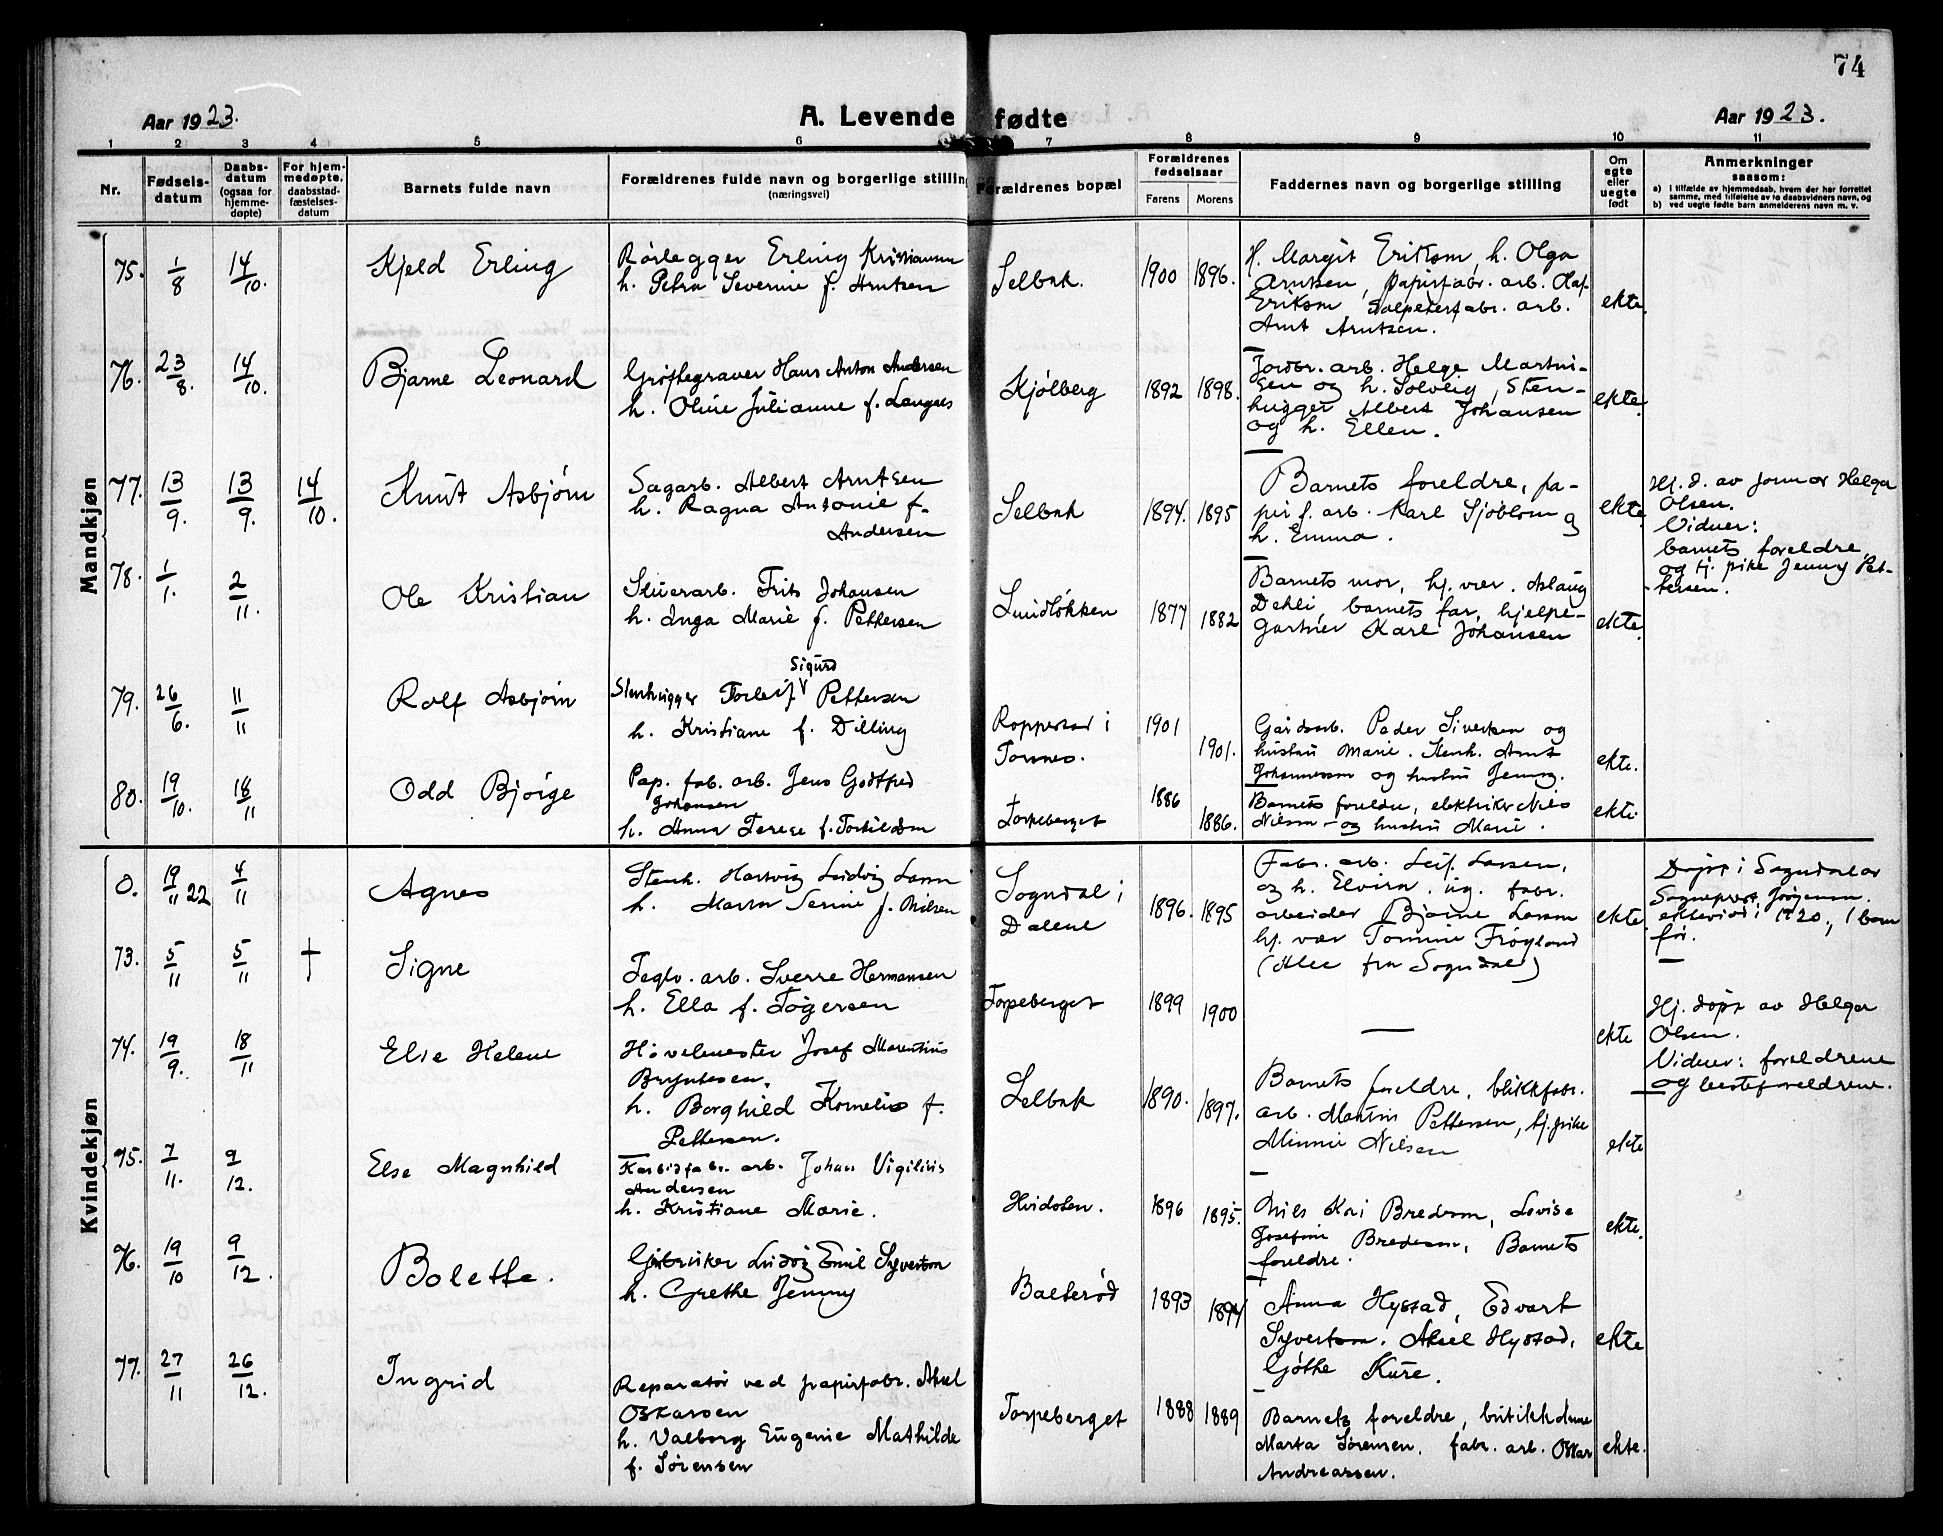 74
Aar 1923.
A. Levende fødte
Aar 1923.
1 2 3 4 5 6 7 8 9 10 11
Nr.
Fødsels-
datum
Daabs-
datum
(ogsaa for
hjemme-
døpte)
For hjem-
medøpte,
daabsstad-
fæstelses-
datum
Barnets fulde navn
Forældrenes fulde navn og borgerlige stilling
(næringsvei)
Forældrenes bopæl
Forældrenes
fødselsaar
Farens Morens
Faddernes navn og borgerlige stilling
Om
egte
eller
uegte
født
Anmerkninger
saasom:
a) I tilfælde av hjemmedaab, hvem der har forrettet
samme, med tilføielse av to daabsvidners navn, og
b) ved uegte fødte barn anmelderens navn m. v.
Mandkjøn
75. 1/8 14/10. Kjeld Erling
Rørlegger Erling Kristiansen
h. Petra Severine f. Arntsen
Selbak. 1900 1896.
f. Margit Erikson, h. Olga
Arntsen, papirfabr. arb. Olaf
Erikson, Salpeterfabr. arb.
Arnt Arntsen.
ekte.
76. 23/8. 14/10. Bjarne Leonard
Grøftegraver Hans Anton Andersen
h. Oline Julianne f. Langnes
Kjølberg 1892 1898.
Jordbr. arb. Helge Martini-
sen og h. Solveig, Sten-
hugger Albert Johansen
og h. Ellen.
ekte.
77. 13/9. 13/9. 14/10. Knut Asbjørn
Sagarb. Albert Arntsen
h. Ragna Antonie f.
Andersen
Selbak 1894. 1895
Barnets foreldre, pa-
pirf. arb. Karl Sjøblom og
h. Emma.
ekte
Hj. d. av jormor Helga
Olsen.
Vidner:
barnets foreldre
og tj. pike Jenny Pet-
tersen.
78. 1/1. 2/11. Ole Kristian
Stuerarb. Frits Johansen
h. Inga Marie f. Pettersen
Lundløkken 1877 1882
Barnets mor, hj. vær. Aslaug
Dehli, barnets far, hjelpe-
gartner Karl Johansen
ekte.
79. 26/6. 11/11 Rolf Asbjørn
Sigurd
Stenhugger Torleif Pettersen
h. Kristiane f. Dilling
Roppestad i
Torsnes. 1901 1901.
Gårdsarb. Peder Sivertsen og
hustru Marie. Stenh. Arnt
Johannessen og hustru Jenny.
ekte.
80. 19/10. 18/11 Odd Bjørge
Pap. fab. arb. Jens Godtfred
Johansen
h. Anna Terese f. Torkildsen
Torpeberget 1886 1886.
Barnets foreldre, elektriker Nils
Nilsen og hustru Marie.
ekte.
Kvindekjøn
0. 19/11 22 4/11 Agnes
Stenh. Hartvig Ludvig Larsen
h. Marta Serine f. Nilsen
Sogndal i
Dalene 1896. 1895
Fabr. arb. Leif Larsen,
og h. Elvira, ug. fabr.
arbeider Bjarne Larsen
hj. vær Tomine Frøyland
(Alle fra Sogndal)
ekte
Døpt i Sogndal av
Sogneprest Jørgensen.
1920, 1 barn
før.
73. 5/11 5/11 † Signe
Teglv. arb. Sverre Hermansen
h. Ella f. Tøgersen
Torpeberget 1899 1900
ekte
Hj. døpt av Helga
Olsen.
Vidner: foreldrene
og besteforeldrene.
74. 19/9. 18/11 Elsie Helene
Høvelmester Josef Marentius
Bryntesen,
h. Borghild Kornelia f.
Pettersen.
Selbak 1890. 1897.
Barnets foreldre, blikkfabr.
arb. Martin Pettersen, tj. pike
Minnie Nilsen
ekte
75. 7/11. 9/12. Else Magnhild
Karbidfabr. arb. Johan Vigilius
Andersen
h. Kristiane Marie.
Hvidsten. 1896 1895.
Nils Kai Bredesen, Lovise
Josefine Bredesen, Barnets
foreldre.
ekte.
76. 19/10 9/12. Bolette.
Gårdbruker Ludvig Emil Syvertsen
h. Grethe Jenny
Balterød 1893 1894
Anna Hystad, Edvart
Syvertsen. Aksel Hystad.
Gøthe Kure.
ekte
77. 27/11 26/12. Ingrid
Reparatør ved papirfabr. Aksel
Oskarsen
h. Valborg Eugenie Mathilde
f. Sørensen
Torpeberget 1888 1889
Barnets foreldre, butikkdame
Marta Sørensen, fabr. arb. Oskar
Andreassen.
ekte.